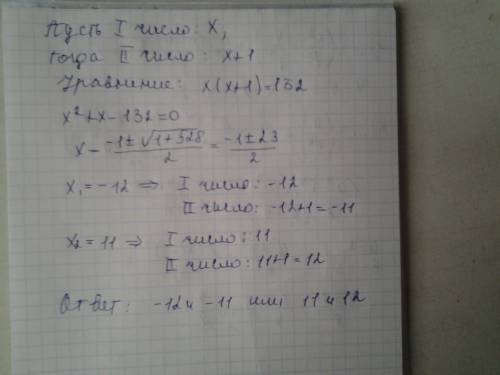 Пусть I число: x,
тогда II число: x+1
Уравнение: x(x+1)=132
x²+x-132=0
x = (-1±√1+528)/2 = (-1±23)/2
x₁=-12 ⇒ I число: -12
II число: -12+1=-11
x₂=11 ⇒ I число: 11
II число: 11+1=12
Ответ: -12 и -11 или 11 и 12